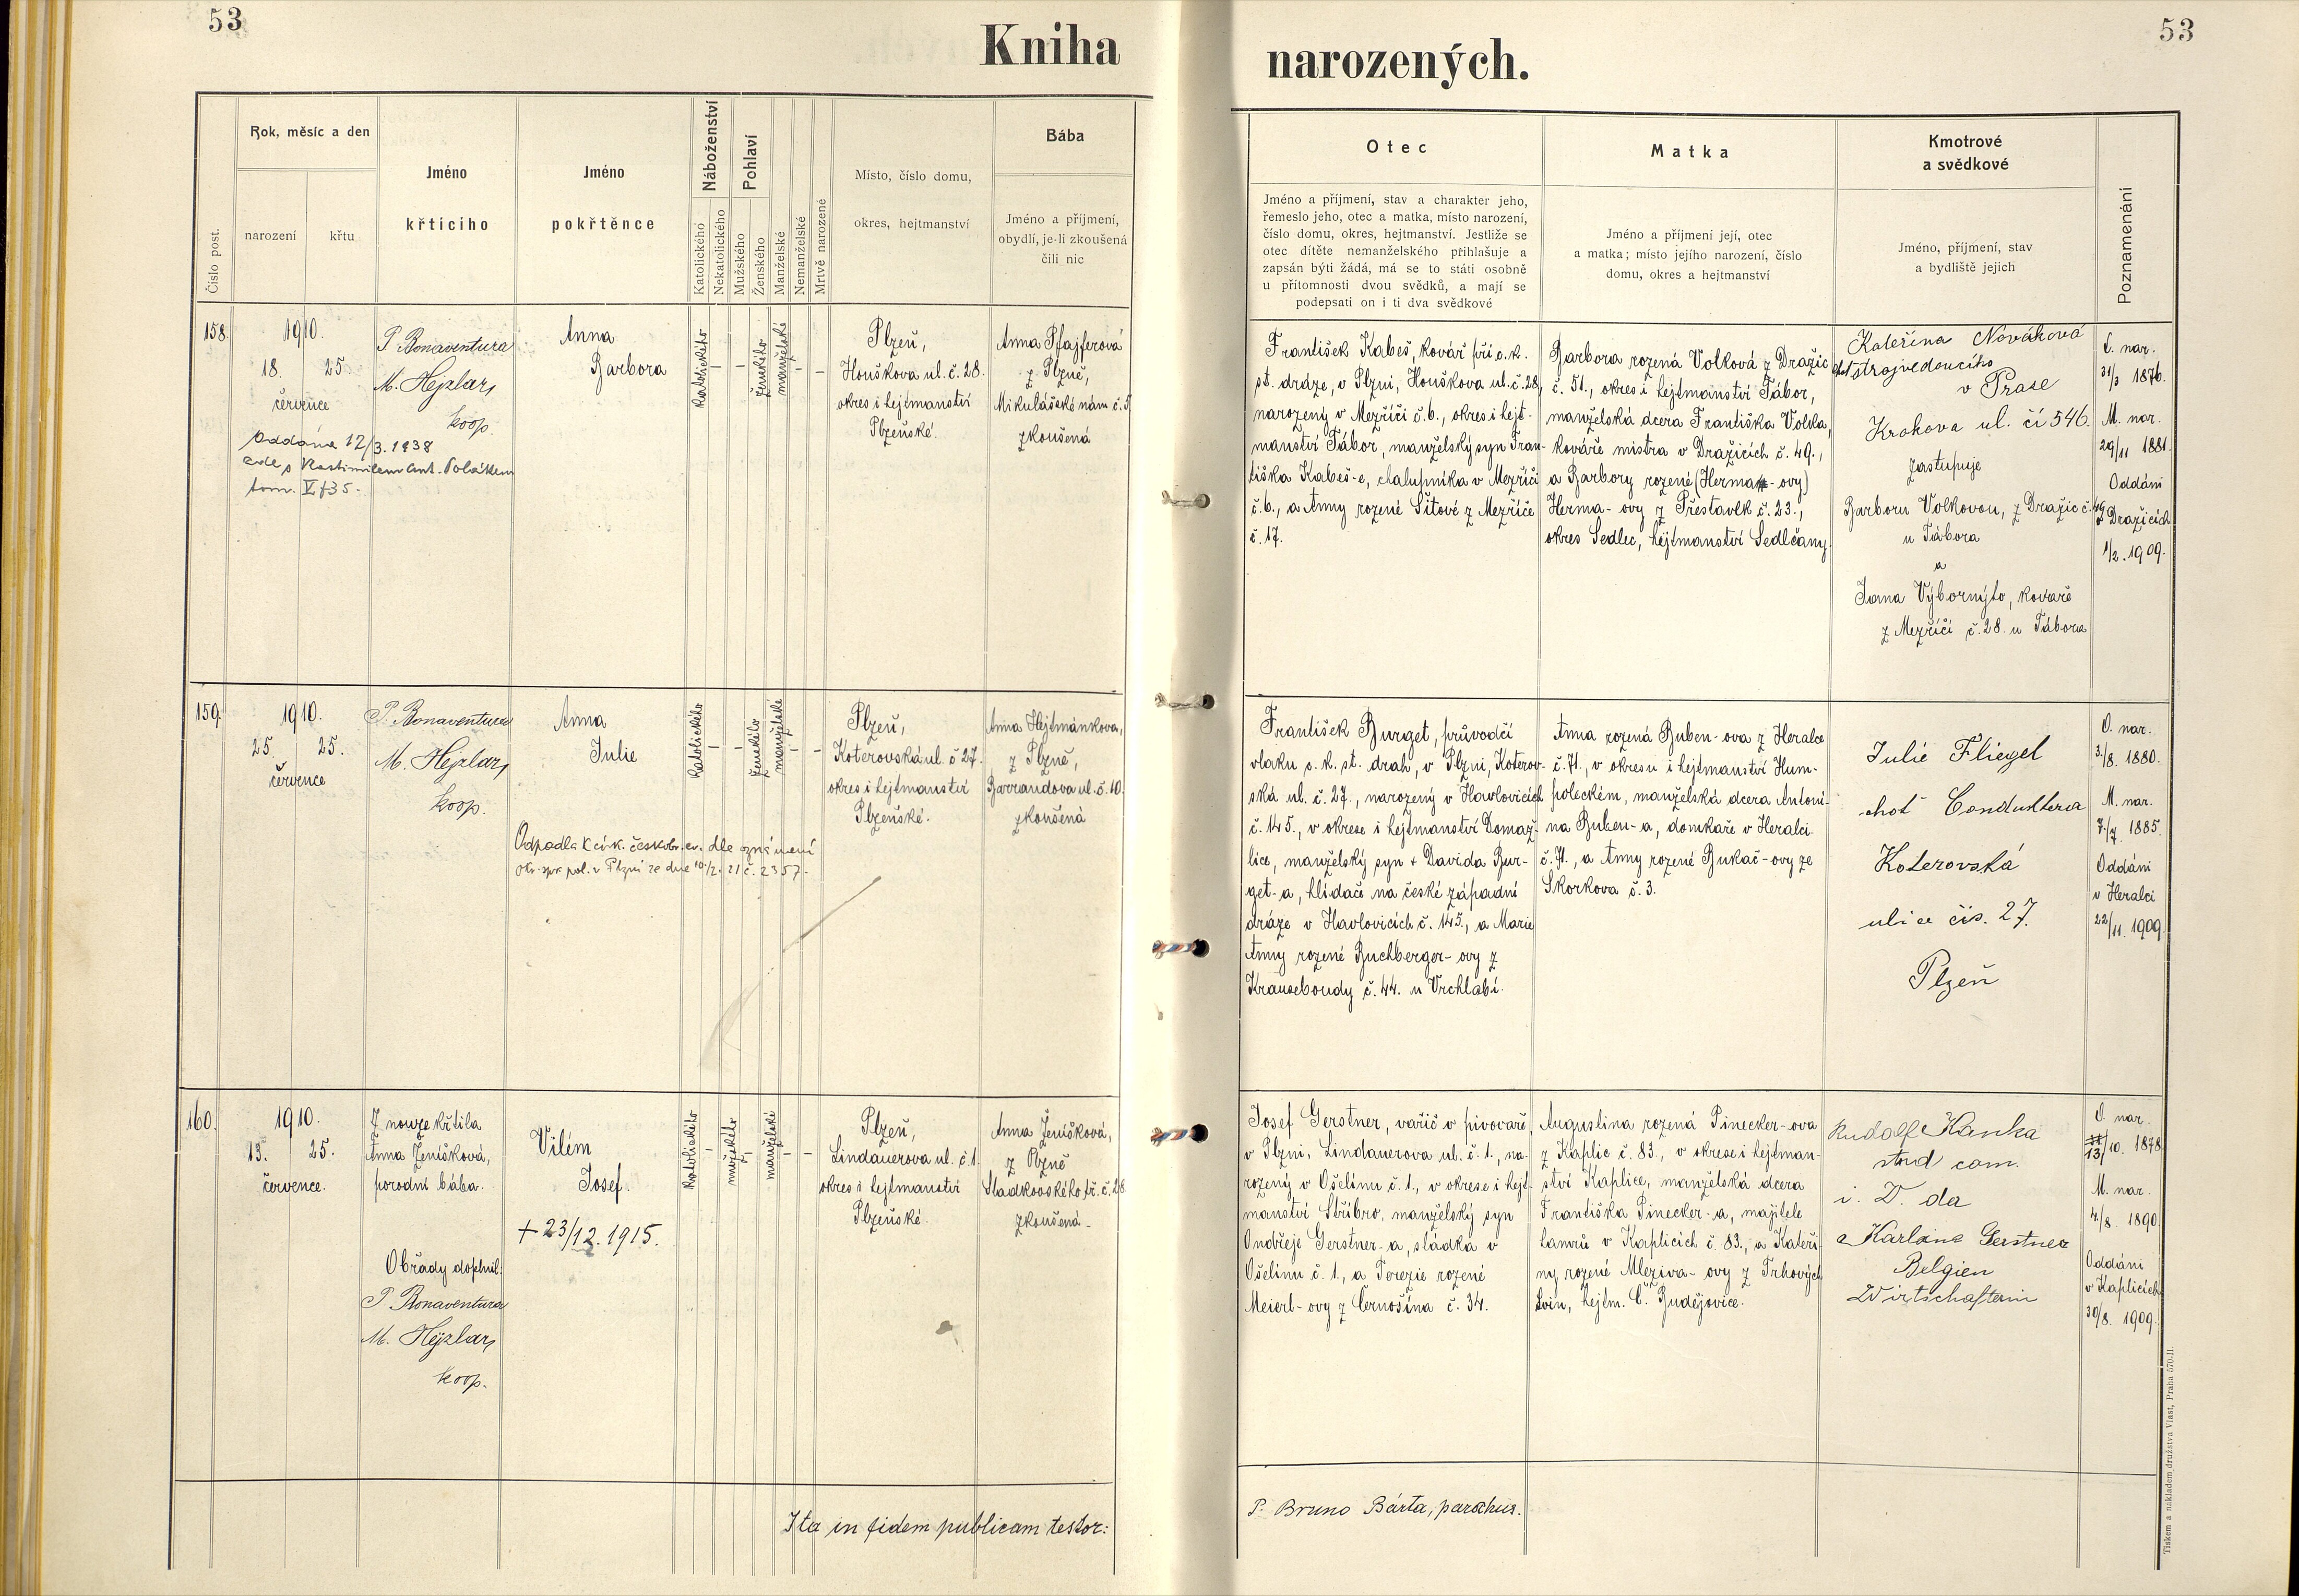 53
53
Kniha
narozených.
Číslo post.
Rok, měsíc a den
narození
křtu
Jméno
křticího
Jméno
pokřtěnce
Náboženství
Katolického
Nekatolického
Pohlaví
Mužského
Ženského
Manželské
Nemanželské
Mrtvě narozené
Místo, číslo domu,
okres, hejtmanství
Bába
Jméno a příjmení,
obydlí, je-li zkoušená
čili nic
Otec
Jméno a příjmení, stav a charakter jeho,
řemeslo jeho, otec a matka, místo narození,
číslo domu, okres, hejtmanství. Jestliže se
otec dítěte nemanželského přihlašuje a
zapsán býti žádá, má se to státi osobně
u přítomnosti dvou svědků, a mají se
podepsati on i ti dva svědkové
Matka
Jméno a příjmení její, otec
a matka; místo jejího narození, číslo
domu, okres a hejtmanství
Kmotrové
a svědkové
Jméno, příjmení, stav
a bydliště jejich
Poznamenání
158.
1910.
18. 25.
července
Oddána 12/3. 1938
zde s Vlastimilem Ant. Polákem
tom. V f 35.
P. Bonaventura
M. Hejzlar,
koop.
Anna
Barbora
Katolického
–
–
ženského
manželské
–
–
Plzeň,
Houškova ul. č. 28.
okres i hejtmanství
Plzeňské.
Anna Pfajferová
z Plzně,
Mikulášské nám. č. 5
zkoušená
František Kabeš, kovář při c. k.
st. dráze, v Plzni, Houškova ul. č. 28,
narozený v Mezříčí č. 6., okres i hejt-
manství Tábor, manželský syn Fran-
tiška Kabeš-e, chalupníka v Mezříčí
č. 6., a Anny rozené Šitové z Mezříče
č. 17.
Barbora rozená Volková z Dražic
č. 51., okres i hejtmanství Tábor,
manželská dcera Františka Volka,
kováře mistra v Dražicích č. 49.,
a Barbory rozené (Herma - ovy)
Herma- ovy z Přestavlk č. 23.,
okres Sedlec, hejtmanství Sedlčany.
Kateřina Nováková
chot strojvedoucího
v Praze
Krokova ul. čí 546.
zastupuje
Barboru Volkovou, z Dražic č. 49
u Tábora
a
Jana Výborného, kováře
z Mezříčí č. 28. u Tábora
O. nar.
31/3 1876.
M. nar.
29/11 1881.
Oddáni
v Dražicích
1/2. 1909.
159.
1910.
25. 25.
července
P. Bonaventura
M. Hejzlar,
koop.
Anna
Julie
Odpadla k cirk. českobr. ev. dle oznámení
okr. spr. pol. v Plzni ze dne 10/2. 21 č. 2357.
Katolického
–
–
ženského
manželské
–
–
Plzeň,
Koterovská ul. č 27.
okres i hejtmanství
Plzeňské.
Anna Hejtmánkova,
z Plzně,
Barrandova ul. č. 10.
zkoušená
František Burget, průvodčí
vlaku c. k. st. drah, v Plzni, Koterov-
ská ul. č. 27., narozený v Havlovicích
č. 145., v okrese i hejtmanství Domaž-
lice, manželský syn + Davida Bur-
get-a, hlídače na české západní
dráze v Havlovicích č. 145., a Marie
Anny rozené Buchberger- ovy z
Krauseboudy č. 44. u Vrchlabí.
Anna rozená Buben- ova z Heralce
č. 71., v okresu i hejtmanství Hum-
poleckém, manželská dcera Antoní-
na Buben- a, domkaře v Heralci
č. 71., a Anny rozené Bukač- ovy ze
Skorkova č. 3.
Julie Fliegel
chot Conduktera
Koterovská
ulice čís. 27.
Plzeň
O. nar.
3./8. 1880.
M. nar.
7./7. 1885.
Oddáni
v Heralci
22/11. 1909.
160.
1910.
13. 25.
července.
Z nouze křtila
Anna Ženíšková,
porodní bába.
Obřady doplnil:
P. Bonaventura
M. Hejzlar,
koop.
Vilém
Josef.
+ 23/12. 1915.
Katolického
–
mužského
–
manželské
–
–
Plzeň,
Lindauerova ul. č. 1.
okres i hejtmanství
Plzeňské.
Anna Ženíšková,
z Plzně
Sladkovského tř. č. 28
zkoušená.
Josef Gerstner, vařič v pivovaře
v Plzni, Lindauerova ul. č. 1., na-
rozený v Ošelínu č. 1., v okrese i hejt-
manství Stříbro, manželský syn
Ondřeje Gerstner-a, sládka v
Ošelínu č. 1., a Terezie rozené
Meierl- ovy z Černošína č. 34.
Augustina rozená Pinecker- ova
z Kaplic č. 83., v okrese i hejtman-
ství Kaplice, manželská dcera
Františka Pinecker- a, majitele
lamů v Kaplicích č. 83., a Kateři-
ny rozené Mleziva- ovy z Trhových
Svin, hejtm. Č. Budějovice.
Rudolf Kanka
stud com.
i. V. da
Karlone Gerstner
Belgien
Wirtschafterin
O. nar.
13/10. 1878
M. nar.
4/8. 1890.
Oddáni
v Kaplicích
30/8. 1909.
Ita in fidem publicam testor:
P. Bruno Bárta, parochus.
Tiskem a nákladem družstva Vlast, Praha 570-II.